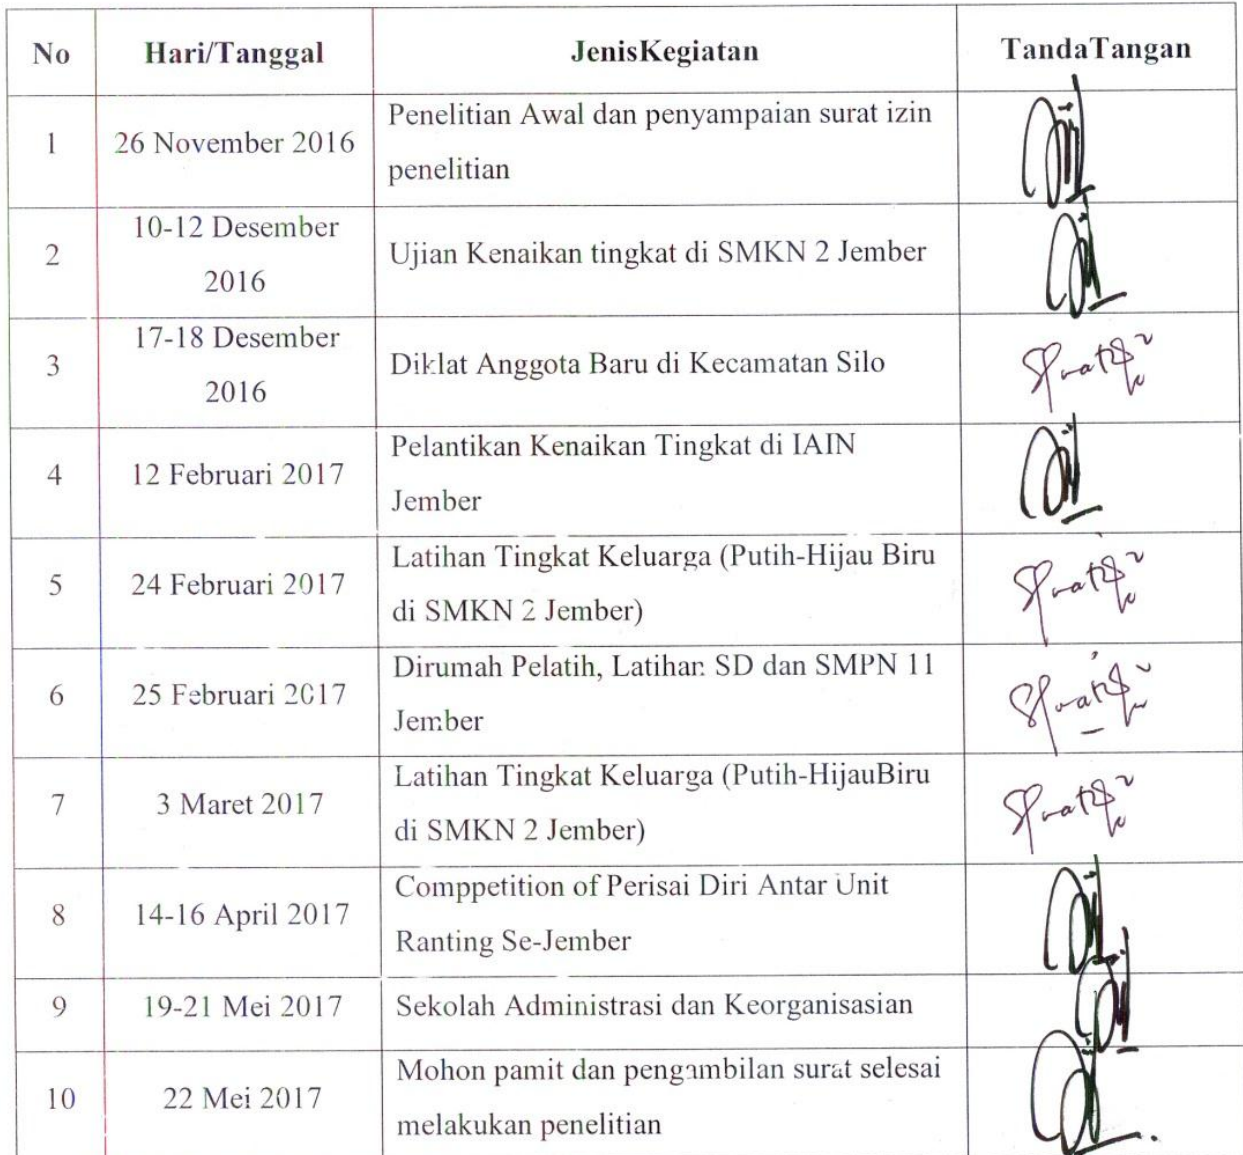 No Hari/Tanggal JenisKegiatan TandaTangan
1 26 November 2016 Penelitian Awal dan penyampaian surat izin
penelitian
2 10-12 Desember
2016 Ujian Kenaikan tingkat di SMKN 2 Jember
3 17-18 Desember
2016 Diklat Anggota Baru di Kecamatan Silo
4 12 Februari 2017 Pelantikan Kenaikan Tingkat di IAIN
Jember
5 24 Februari 2017 Latihan Tingkat Keluarga (Putih-Hijau Biru
di SMKN 2 Jember)
6 25 Februari 2017 Dirumah Pelatih, Latihan SD dan SMPN 11
Jember
7 3 Maret 2017 Latihan Tingkat Keluarga (Putih-HijauBiru
di SMKN 2 Jember)
8 14-16 April 2017 Comppetition of Perisai Diri Antar Unit
Ranting Se-Jember
9 19-21 Mei 2017 Sekolah Administrasi dan Keorganisasian
10 22 Mei 2017 Mohon pamit dan pengambilan surat selesai
melakukan penelitian